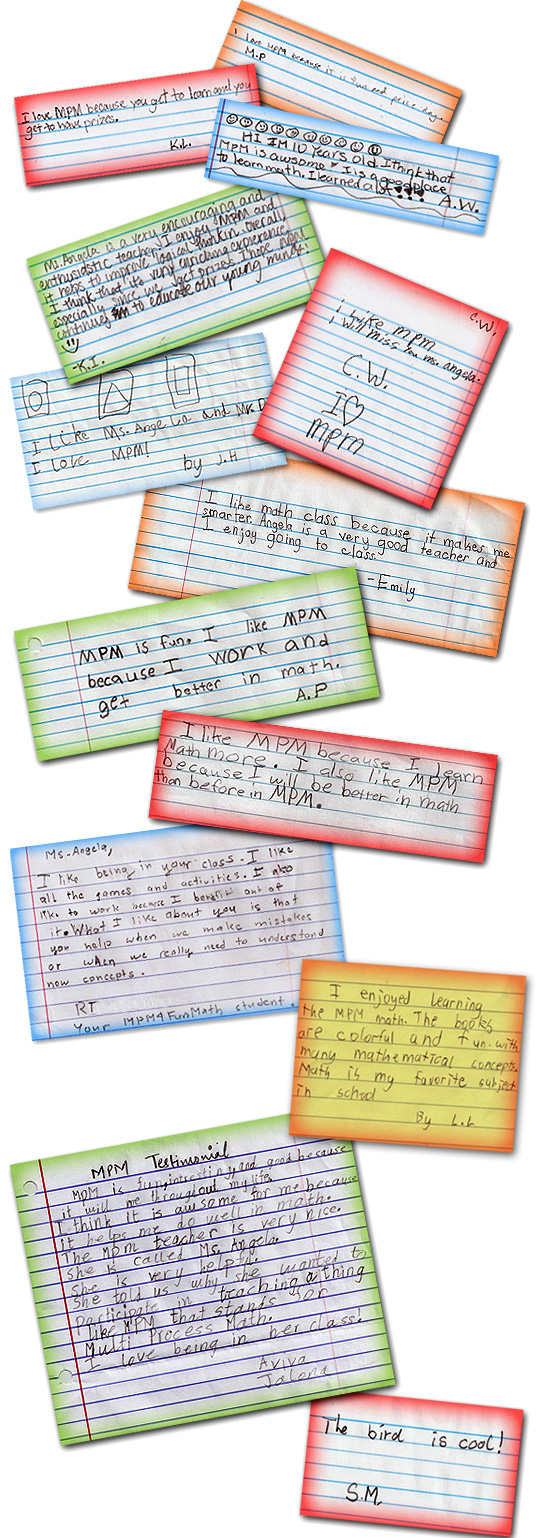 I love MPM because it is fun and price day.
M.P
I love MPM because you get to learn and you
get to have prizes.
K.L.
HI IM 10 Years old. I think that
MPM is awsome I is a good place
to learn math. I learned alot
A.W.
M. Angela is a very encouraging and
enthusiastic teacher. I enjoy MPM and
it helps to improve logical thinkin. Overall
I think that it's very enriching experience
especially since we get prizes. I hope
continues to educate our young minds!
-K.I.
C.W.
i Like mpm
i will miss you ms. angela.
C.W.
I
mpm
I like Ms. Angela and Ms. D
I love MPM!
by J.H
I like math class because it makes me
smarter. Angela is a very good teacher and
I enjoy going to class
-Emily
MPM is fun. I like MPM
because I work and
get better in math.
A.P
I like MPM because I learn
Math more. I also like MPM
because I will be better in math
than before in MPM.
Ms-Angela,
I like being in your class. I like
all the games and activities. I also
like to work because I benefit out of
it. What I like about you is that
you help when we make mistakes
or when we really need to understand
new concepts.
RT
Your MPM4FunMath student.
I enjoyed learning
the MPM math. The books
are colorful and fun. with
many mathematical concepts.
Math is my favorite subject
in school
By L.L
MPM Testimonial
MPM is fun, intresting, and good because
it will me throughout my life.
I think it is awsome for me because
it helps me do well in math.
The MPM teacher is very nice.
She is called Ms. Angela.
She is very helpful.
She told us why she wanted to
participate in teaching a thing
like MPM that stands for
Multi Process Math.
I love being in her class!
Aviva
Jalona
The bird is cool!
S.M.